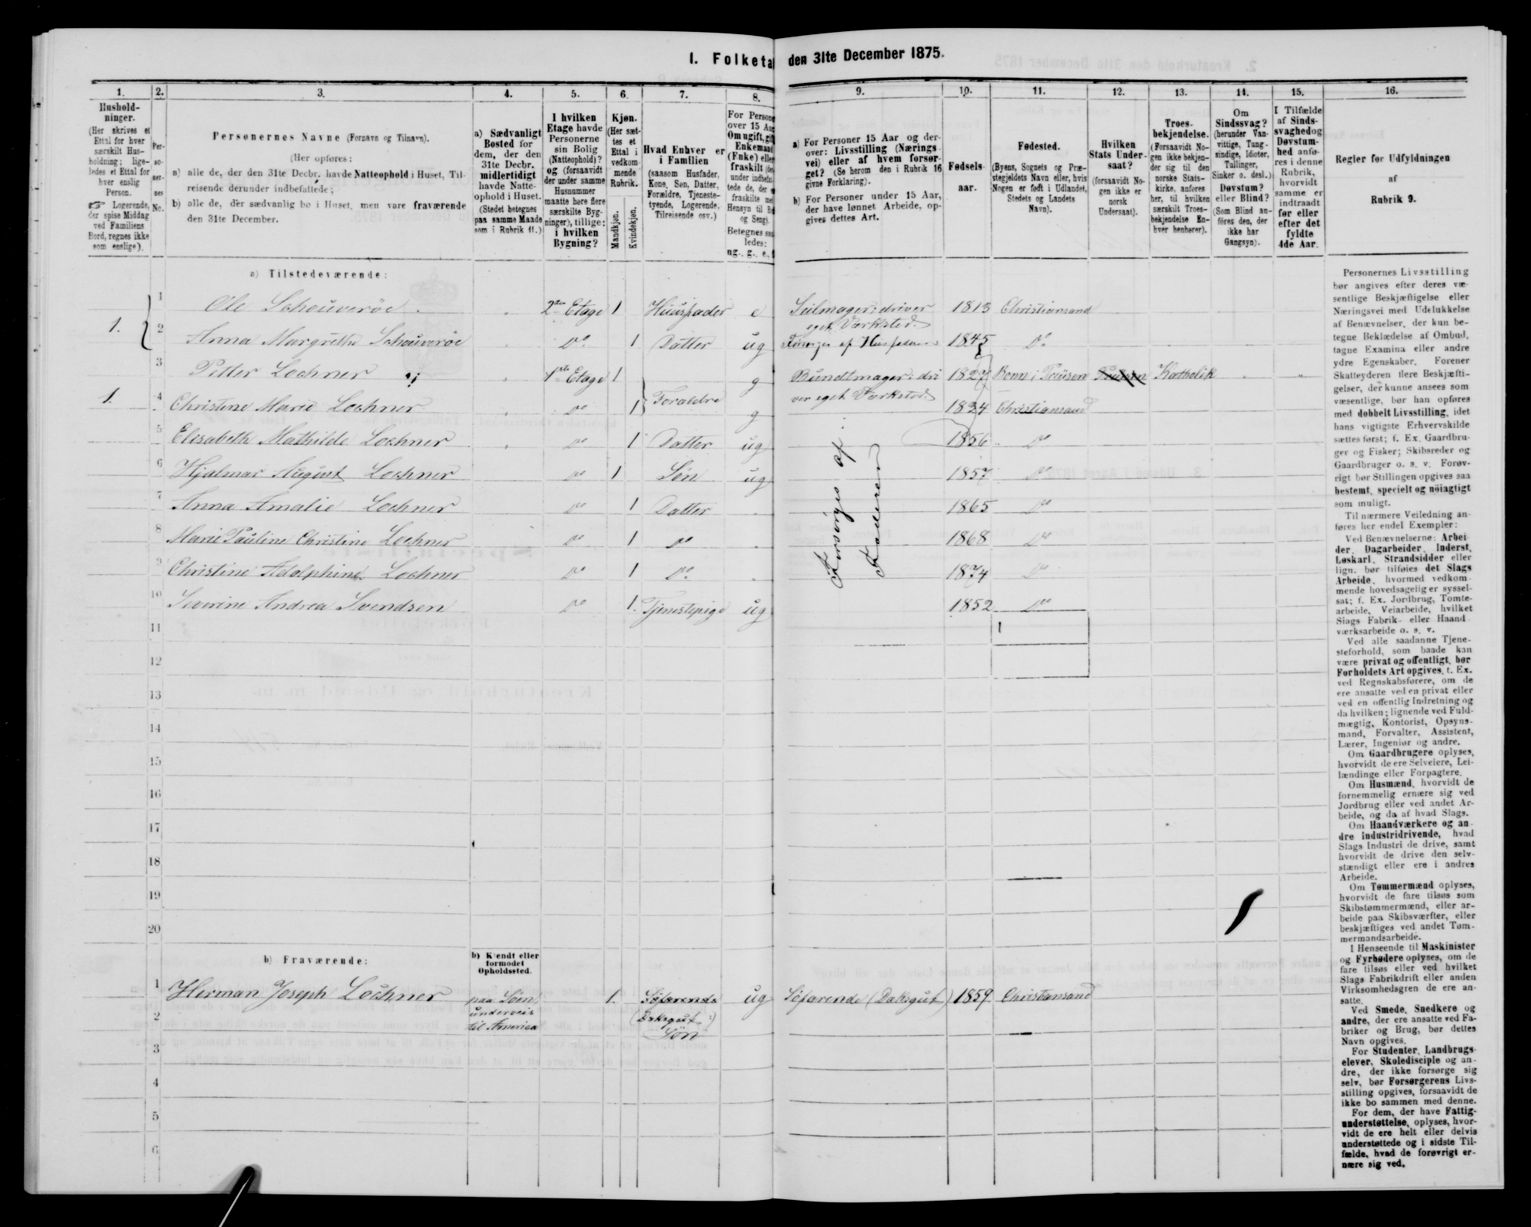 I. Folketa
den 31te December 1875.
1.
2.
3.
4.
5.
6.
7.
8.
9.
10.
11.
12.
13.
14.
15.
16.
Hushold-
ninger.
(Her skrives et
Ettal for hver
særskilt Hus-
holdning; lige-
ledes et Ettal for
hver enslig
Person.
☞ Logerende,
der spise Middag
ved Familiens
Bord, regnes ikke
som enslige).
Per-
so-
ner-
nes
No.
Personernes Navne (Fornavn og Tilnavn).
(Her opføres:
a) alle de, der den 31te Decbr. havde Natteophold i Huset, Til-
reisende derunder indbefattede;
b) alle de, der sædvanlig bo i Huset, men vare fraværende
den 31te December.
a) Sædvanligt
Bosted for
dem, der den
31te Decbr.
midlertidigt
havde Natte-
ophold i Huset.
(Stedet betegnes
paa samme Maade
som i Rubrik 11.)
I hvilken
Etage havde
Personerne
sin Bolig
(Natteophold)?
og (forsaavidt
der under samme
Husnummer
maatte høre flere
særskilte Byg-
ninger), tillige:
i hvilken
Bygning?
Kjøn.
(Her sæt-
tes et
Ettal i
vedkom-
mende
Rubrik.
Mandkjøn.
Kvindekjøn.
Hvad Enhver er
i Familien
(saasom Husfader,
Kone, Søn, Datter,
Forældre, Tjeneste-
tyende, Logerende,
Tilreisende osv.)
For Persone
over 15 Aa
Om ugift, gif
Enkeman
(Enke) elle
fraskilt (de
under indbefat-
tede de, der
fraskilte
Hensyn til B
og Seng).
Betegnes saa
ledes:
ug., g., e., f
a) For Personer 15 Aar og der-
over: Livsstilling (Nærings
vei) eller af hvem forsør-
get? (Se herom den i Rubrik 16
givne Forklaring).
b) For Personer under 15 Aar,
der have lønnet Arbeide, op-
gives dettes Art.
Fødsels-
aar.
Fødested.
(Byens, Sognets og Præ-
stegjeldets Navn eller, hvis
Nogen er født i Udlandet,
Stedets og Landets
Navn).
Hvilken
Stats Under-
saat?
(forsaavidt No-
gen ikke er
norsk
Undersaat).
Troes-
bekjendelse.
(Forsaavidt No-
gen ikke bekjen-
der sig til den
norske Stats-
kirke, anføres
her, til hvilken
særskilt Troes-
bekjendelse En-
hver henhører).
Om
Sindssvag?
(herunder Van-
vittige, Tung-
sindige, Idioter,
Tullinger,
Sinker o. desl.)
Døvstum?
eller Blind?
(Som Blind an-
føres den, der
ikke har
Gangsyn).
I Tilfælde
af Sinds-
svaghed og
Døvstum-
hed anfø-
res i denne
Rubrik,
hvorvidt
samme er
indtraadt
før eller
efter det
fyldte
4de Aar.
Regler før Udfyldningen
af
Rubrik 9.
a) Tilstedeværende:
1. 1 Ole Schouverøe 2den Etage 1 Huusfader e Seilmager: driver 1813 Christiansand
eget Værksted
2 Anna Margrethe Schouverøe Do 1 Datter ug Forsørges af Husfaderen 1845 Do
Petter Lochner 1ste Etage 1 g Bundtmager: dri 1827 Bonn i Preusen Preusen Katholik
1. 4 Christine Marie Lochner Do 1 Forældre g ver eget Værksted 1834 Christiansand
5 Elisabeth Mathilde Lochner Do 1 Datter ug 1856 Do
6 Hjalmar August Lochner Do 1 Søn ug 1857 Do
7 Anna Amalie Lochner Do 1 Datter 1865 Do
8 Marie Pauline Christine Lochner Do 1 Do 1868 Do
9 Christine Adolphine Lochner Do 1 Do 1874 Do
10 Severine Andrea Svendsen Do 1 Tjenestepige ug 1852 Do
Forsørges af
Faderen
11
12
13
14
15
16
17
18
19
20
b) Fraværende:
b) Kjendt eller
formodet
Opholdssted.
1 Herman Joseph Lochner paa Søen 1. Søfarende ug Søfarende (Daksgut) 1859 Christiansand
2 underveis (Daksgut:)
til America Søn
3
4
5
6
Personernes Livsstilling
bør angives efter deres væ-
sentlige Beskjæftigelse eller
Næringsvei med Udelukkelse
af Benævnelser, der kun be-
tegne Beklædelse af Ombud,
tagne Examina eller andre
ydre Egenskaber. Forener
Skatteyderen flere Beskjæfti-
gelser, der kunne ansees som
væsentlige, bør han opføres
med dobbelt Livsstilling, idet
hans vigtigste Erhvervskilde
sættes først; f. Ex. Gaardbru-
ger og Fisker; Skibsreder og
Gaardbruger o. s. v. Forøv-
rigt bør Stillingen opgives saa
bestemt, specielt og nøiagtigt
som muligt.
Til nærmere Veiledning an-
føres her endel Exempler:
Ved Benævnelserne: Arbei-
der, Dagarbeider, Inderst,
Løskarl, Strandsidder eller
lign. bør tilføies det Slags
Arbeide, hvormed vedkom-
mende hovedsagelig er syssel-
sat; f. Ex. Jordbrug, Tomte-
arbeide, Veiarbeide, hvilket
Slags Fabrik- eller Haand
værksarbeide o. s. v.
Ved alle saadanne Tjene-
steforhold, som baade kan
være privat og offentligt, bør
Forholdets Art opgives, t. Ex.
ved Regnskabsførere, om de
ere ansatte ved en privat eller
ved en offentlig Indretning og
da hvilken; lignende ved Fuld-
mægtig, Kontorist, Opsyns-
mand, Forvalter, Assistent,
Lærer, Ingeniør og andre.
Om Gaardbrugere oplyses,
hvorvidt de ere Selveiere, Lei-
lændinge eller Forpagtere.
Om Husmænd, hvorvidt de
fornemmelig ernære sig ved
Jordbrug eller ved andet Ar-
beide, og da af hvad Slags.
Om Haandværkere og an-
dre industridrivende, hvad
Slags Industri de drive, samt
hvorvidt de drive den selv-
stændigt eller ere i andres
Arbeide.
Om Tømmermænd oplyses,
hvorvidt de fare tilsøs som
Skibstømmermænd, eller ar-
beide paa Skibsværfter, eller
beskjæftiges ved andet Tøm-
mermandsarbeide.
I Henseende til Maskinister
og Fyrbødere oplyses, om de
fare tilsøs eller ved hvilket
Slags Fabrikdrift eller anden
Virksomhedsgren de ere an-
satte.
Ved Smede, Snedkere og
andre, der ere ansatte ved Fa-
briker og Brug, bør dettes
Navn opgives.
For Studenter, Landbrugs-
elever, Skoledisciple og an-
dre, der ikke forsørge sig
selv, bør Forsørgerens Livs-
stilling opgives, forsaavidt de
ikke bo sammen med denne.
For dem, der have Fattig-
understøttelse, oplyses, hvor-
vidt de ere helt eller delvis
understøttede og i sidste Til-
fælde, hvad de forøvrigt er-
nære sig ved.